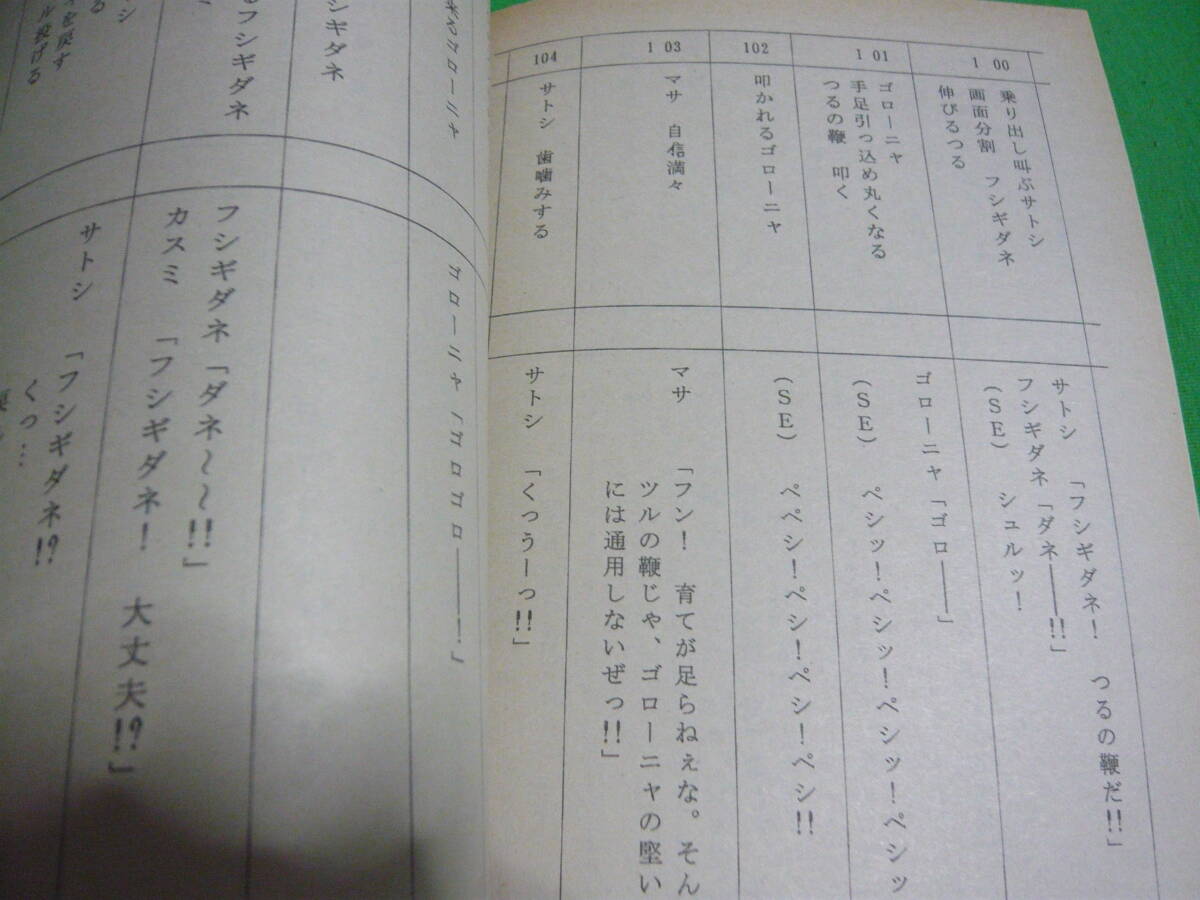 1 00
乗り出し叫ぶサトシ
画面分割 フシギダネ
伸びるつる
サトシ 「フシギダネ! つるの鞭だ!!」
フシギダネ「ダネ――!!」
(SE) シュルッ!
1 01
ゴローニャ
手足引っ込め丸くなる
つるの鞭 叩く
ゴローニャ「ゴロ――」
(SE) ペシッ!ペシッ!ペシッ!ペシッ
102
叩かれるゴローニャ
(SE) ペペシ!ペシ!ペシ!ペシ!!
1 03
マサ 自信満々
マサ 「フン! 育てが足らねぇな。そん
ツルの鞭じゃ、ゴローニャの堅い
には通用しないぜっ!!」
104
サトシ 歯噛みする
サトシ 「くっうーっ!!」
ゴローニャ
ゴローニャ「ゴロゴロ――!」
シギダネ
るフシギダネ
フシギダネ「ダネ～～!!」
カスミ 「フシギダネ! 大丈夫!?」
シ
る
を戻す
ル投げる
サトシ 「フシギダネ!?
くっ…